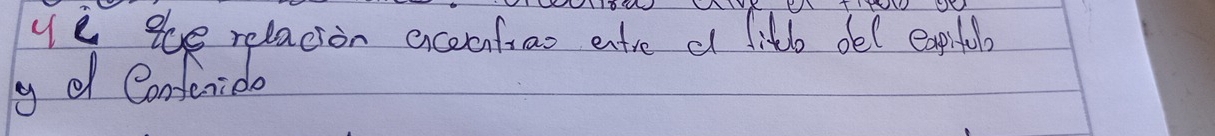 4 ¿ Que relación encuentras entre el titulo del capitulo
y el Contenido